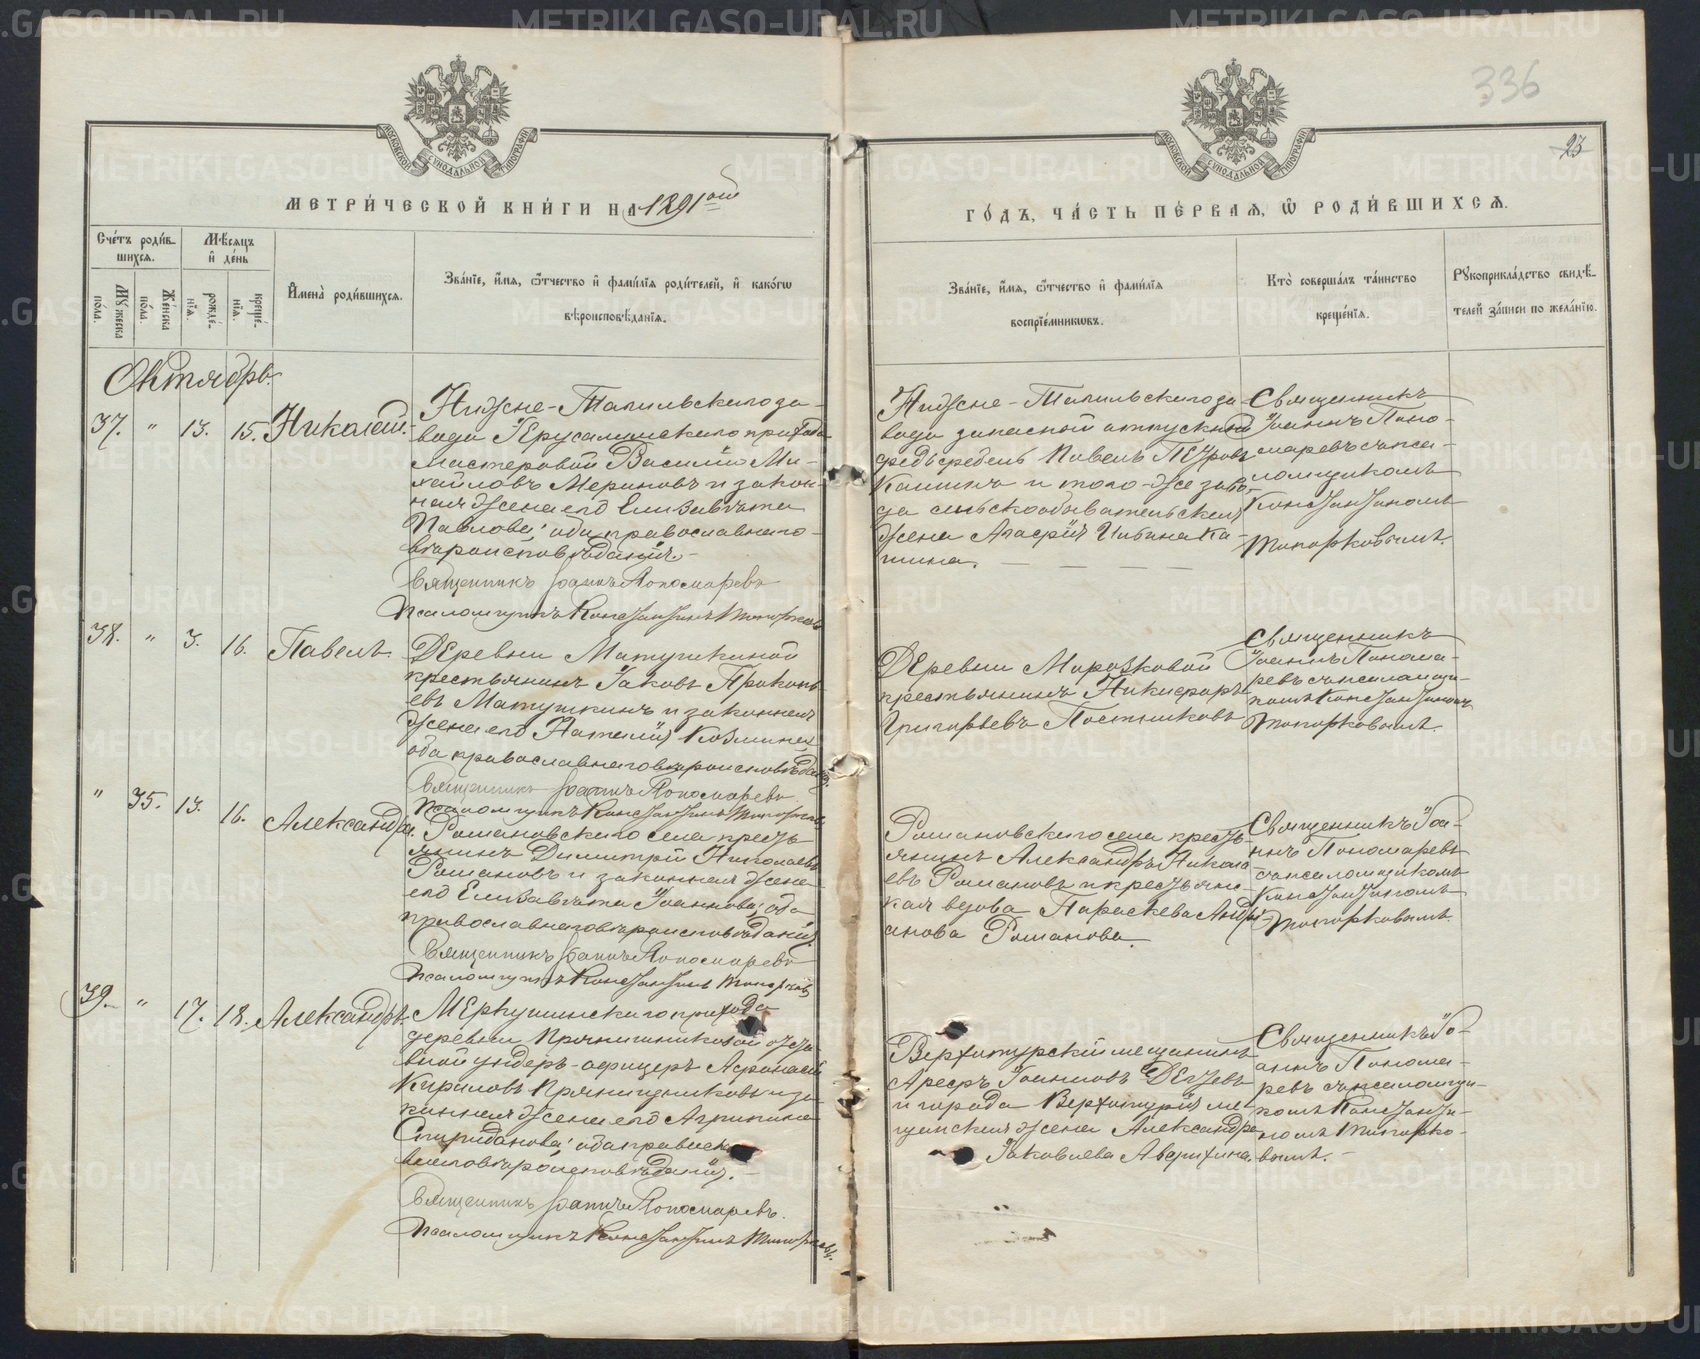 336
23
МЕТРИ́ЧЕСКОЙ КНИ́ГИ НА 1891ый
ГО́ДЪ, ЧА́СТЬ ПЕ́РВАЯ, Ѿ РОДИ́ВШИХСЯ.
Сче́тъ роди́в-
шихся.
Мѣ́сяцъ
и҆ де́нь
Му́жеска
по́ла.
Же́нска
по́ла.
рожде́-
нїя.
креще́-
нїя.
И҆мена̀ роди́вшихся.
Зва́нїе, и҆́мя, ѻ҆́тчество и҆ фами́лїя роди́телей, и҆ како́гѡ
вѣроисповѣ́данїя.
Зва́нїе, и҆́мя, ѻ҆́тчество и҆ фами́лїя
воспрїе́мникѡвъ.
Кто̀ соверша́лъ та́инство
креще́нїя.
Рꙋкоприкла́дство свидѣ́-
телей за́писи по жела́нїю.
Октябрь.
37. " 13. 15. Николай.
Нижне-Тагильскаго за-
вода Iерусалимскаго прихода
мастеровой Василій Ми-
хайловъ Мериновъ и закон-
ная жена его Елизавета
Павлова; оба православнаго
вѣроисповѣданія.
Священникъ Iоаннъ Пономаревъ
Псаломщикъ Константинъ Топорковъ
Нижне-Тагильскаго за-
вода запасной отпускной
Павелъ Петровъ
Кашинъ и того-же заво-
да сельскообывательская
жена Агафія Иванова Ка-
шина.
Священникъ
Iоаннъ Поно-
маревъ съ пса-
ломщикомъ
Константиномъ
Топорковымъ.
38. " 3. 16. Павелъ.
Деревни Матушкиной
крестьянинъ Iаковъ Прокопь-
евъ Матушкинъ и законная
жена его Наталія Козмина;
оба православнаго вѣроисповѣданія.
Священникъ Iоаннъ Пономаревъ
Псаломщикъ Константинъ Топорковъ
Деревни Морозковой
крестьянинъ Никифоръ
Григорьевъ Постниковъ
Священникъ
Iоаннъ Понома-
ревъ съ псаломщи-
комъ Константиномъ
Топорковымъ.
" 35. 13. 16. Александра.
Романовскаго села кресть-
янинъ Димитрій Николаевъ
Романовъ и законная жена
его Елизавета Iоаннова; оба
православнаго вѣроисповѣданія.
Священникъ Iоаннъ Пономаревъ
Псаломщикъ Константинъ Топорковъ
Романовскаго села кресть-
янинъ Александръ Никола-
евъ Романовъ и крестьянс-
кая вдова Параскева Андрі-
анова Романова.
Священникъ Iоа-
ннъ Пономаревъ
съ псаломщикомъ
Константиномъ
Топорковымъ.
39. " 17. 18. Александръ.
Меркушинскаго прихода
деревни Прянишниковой отста-
вной ундеръ-офицеръ Афанасій
Кириловъ Прянишниковъ и за-
конная жена его Агрипина
Спиридонова; оба правосла-
внаго вѣроисповѣданія.
Священникъ Iоаннъ Пономаревъ.
Псаломщикъ Константинъ Топорковъ.
Верхотурскій мещанинъ
Iоанновъ Дегтевъ
и города Верхотурья ме-
щанская жена Александра
Iаковлева Аверихина.
Священникъ Iо-
аннъ Понома-
ревъ съ псаломщи-
комъ Константи-
номъ Топорко-
вымъ.
METRIKI.GASO-URAL.RU